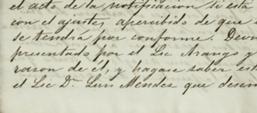 el acto de la notificacion si esta
con el ajuste, apercibido de que
se tendrá por conforme. Devu
presentado por el Lic Arango y
razon de él, y hagase saber est
el Lic Dn. Luis Mendez que desem